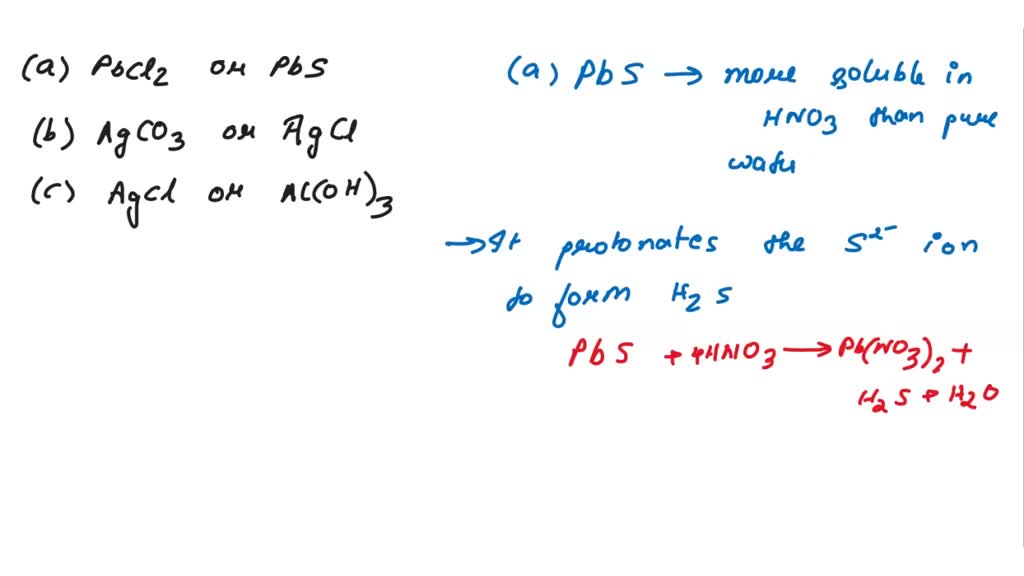 (a) PbCl2 or PbS
(b) AgCO3 or AgCl
(c) AgCl or Al(OH)3
(a) PbS → more soluble in
HNO3 than pure
water
→ It protonates the S²⁻ ion
to form H2S
PbS + 4HNO3 → Pb(NO3)2 +
H2S + H2O